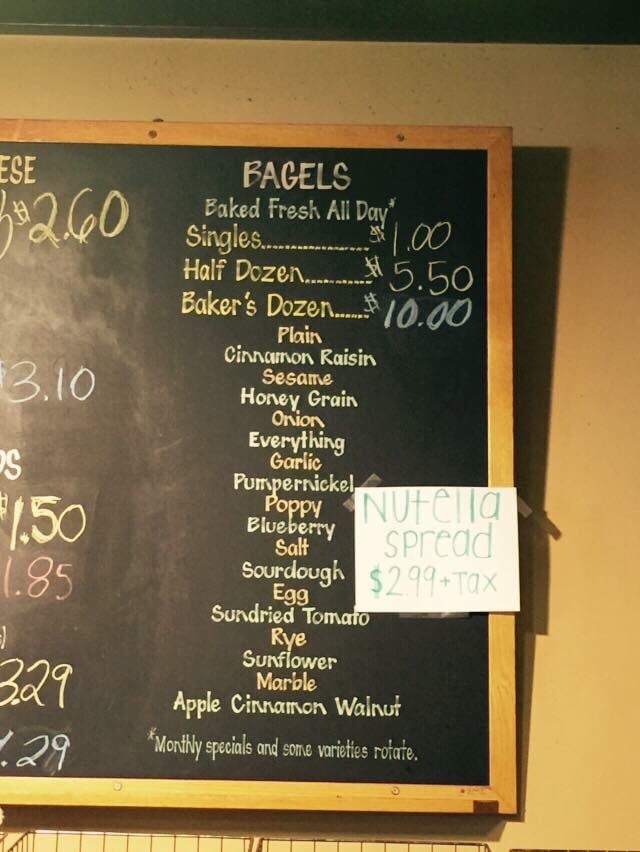 ESE
$2.60
3.10
1.50
1.85
3.29
.29
BAGELS
Baked Fresh All Day*
Singles.................... $1.00
Half Dozen............ $5.50
Baker's Dozen...... $10.00
Plain
Cinnamon Raisin
Sesame
Honey Grain
Onion
Everything
Garlic
Pumpernickel
Poppy
Blueberry
Salt
Sourdough
Egg
Sundried Tomato
Rye
Sunflower
Marble
Apple Cinnamon Walnut
*Monthly specials and some varieties rotate.
Nutella
spread
$2.99+Tax